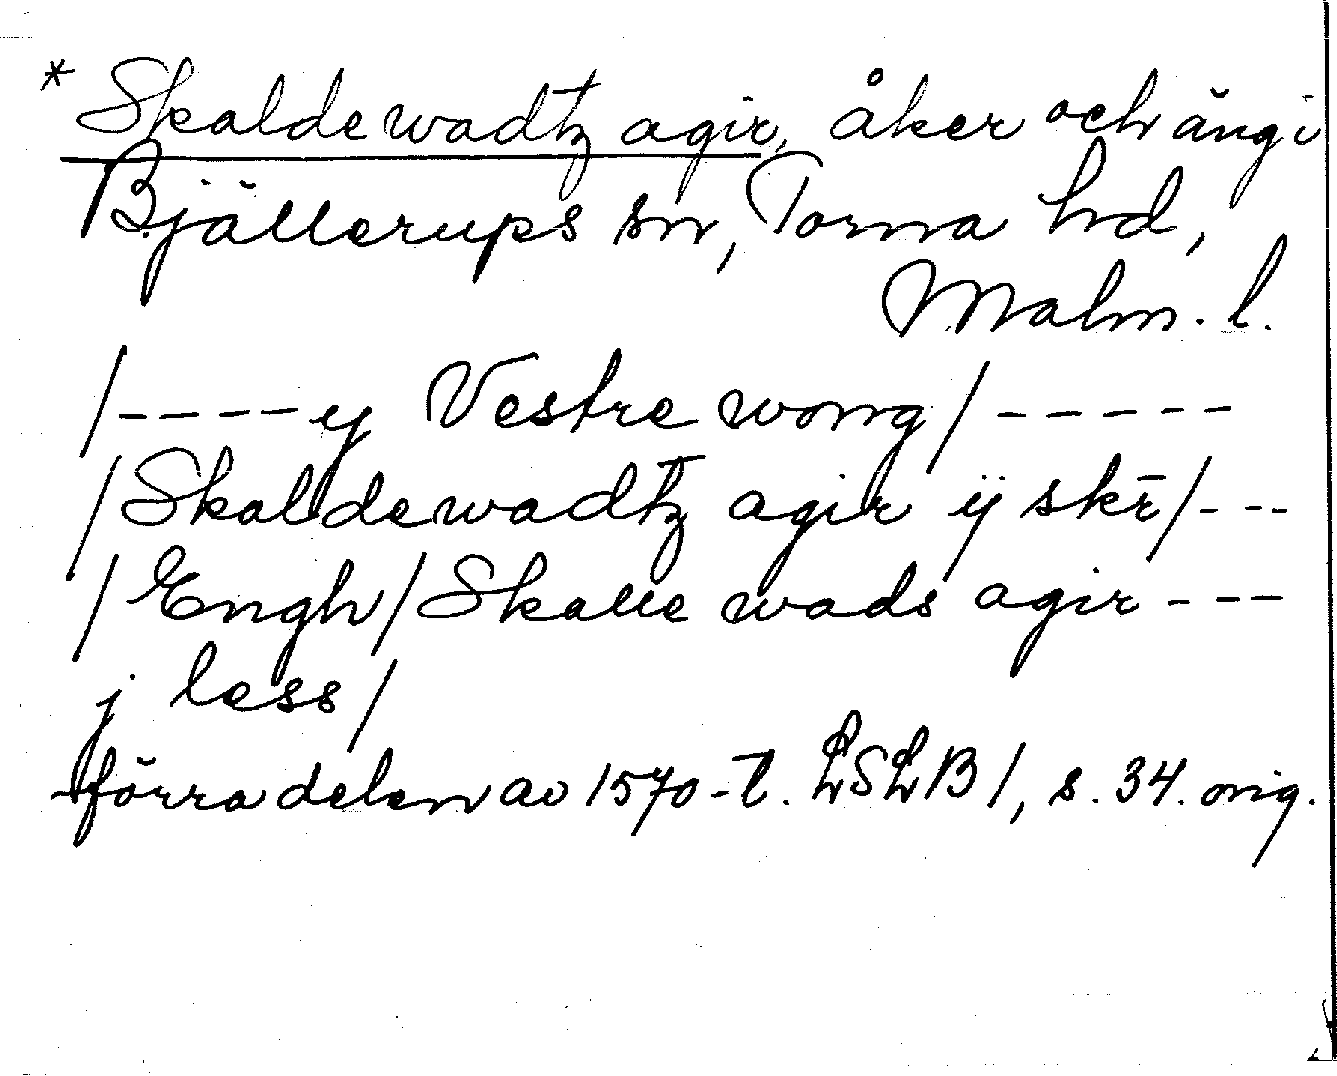 * Skaldewadtz agir, åker och äng i
Bjällerups sn, Torna hd,
Malm. l.
/----y Vestre wong/-----
/Skaldewadtz agir ÿ skr̄/---
/Engh/Skalle wads agir---
j less/
förra delen av 1570-t. LSLB 1, s. 34. orig.